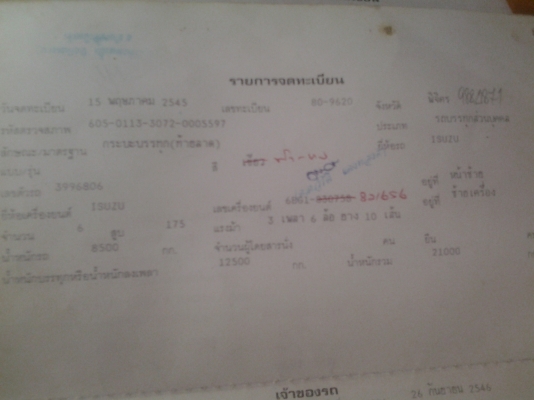 รายการจดทะเบียน
วันจดทะเบียน 15 พฤษภาคม 2545 เลขทะเบียน 80-9620 จังหวัด พิจิตร
รหัสตรวจสภาพ 605-0113-3072-0005597 ประเภท รถบรรทุกส่วนบุคคล
ลักษณะ/มาตรฐาน กระบะบรรทุก(ท้ายลาด) ยี่ห้อรถ ISUZU
แบบ/รุ่น สี
เลขตัวรถ 3996806 อยู่ที่ หน้าซ้าย
ยี่ห้อเครื่องยนต์ ISUZU เลขเครื่องยนต์ 6BG1- 821656 อยู่ที่ ซ้ายเครื่อง
จำนวน 6 สูบ 175 แรงม้า 3 เพลา 6 ล้อ ยาง 10 เส้น
น้ำหนักรถ 8500 กก. จำนวนผู้โดยสารนั่ง คน ยืน คน
น้ำหนักบรรทุกหรือน้ำหนักลงเพลา 12500 กก. น้ำหนักรวม 21000
เจ้าของรถ
26 กันยายน 2546